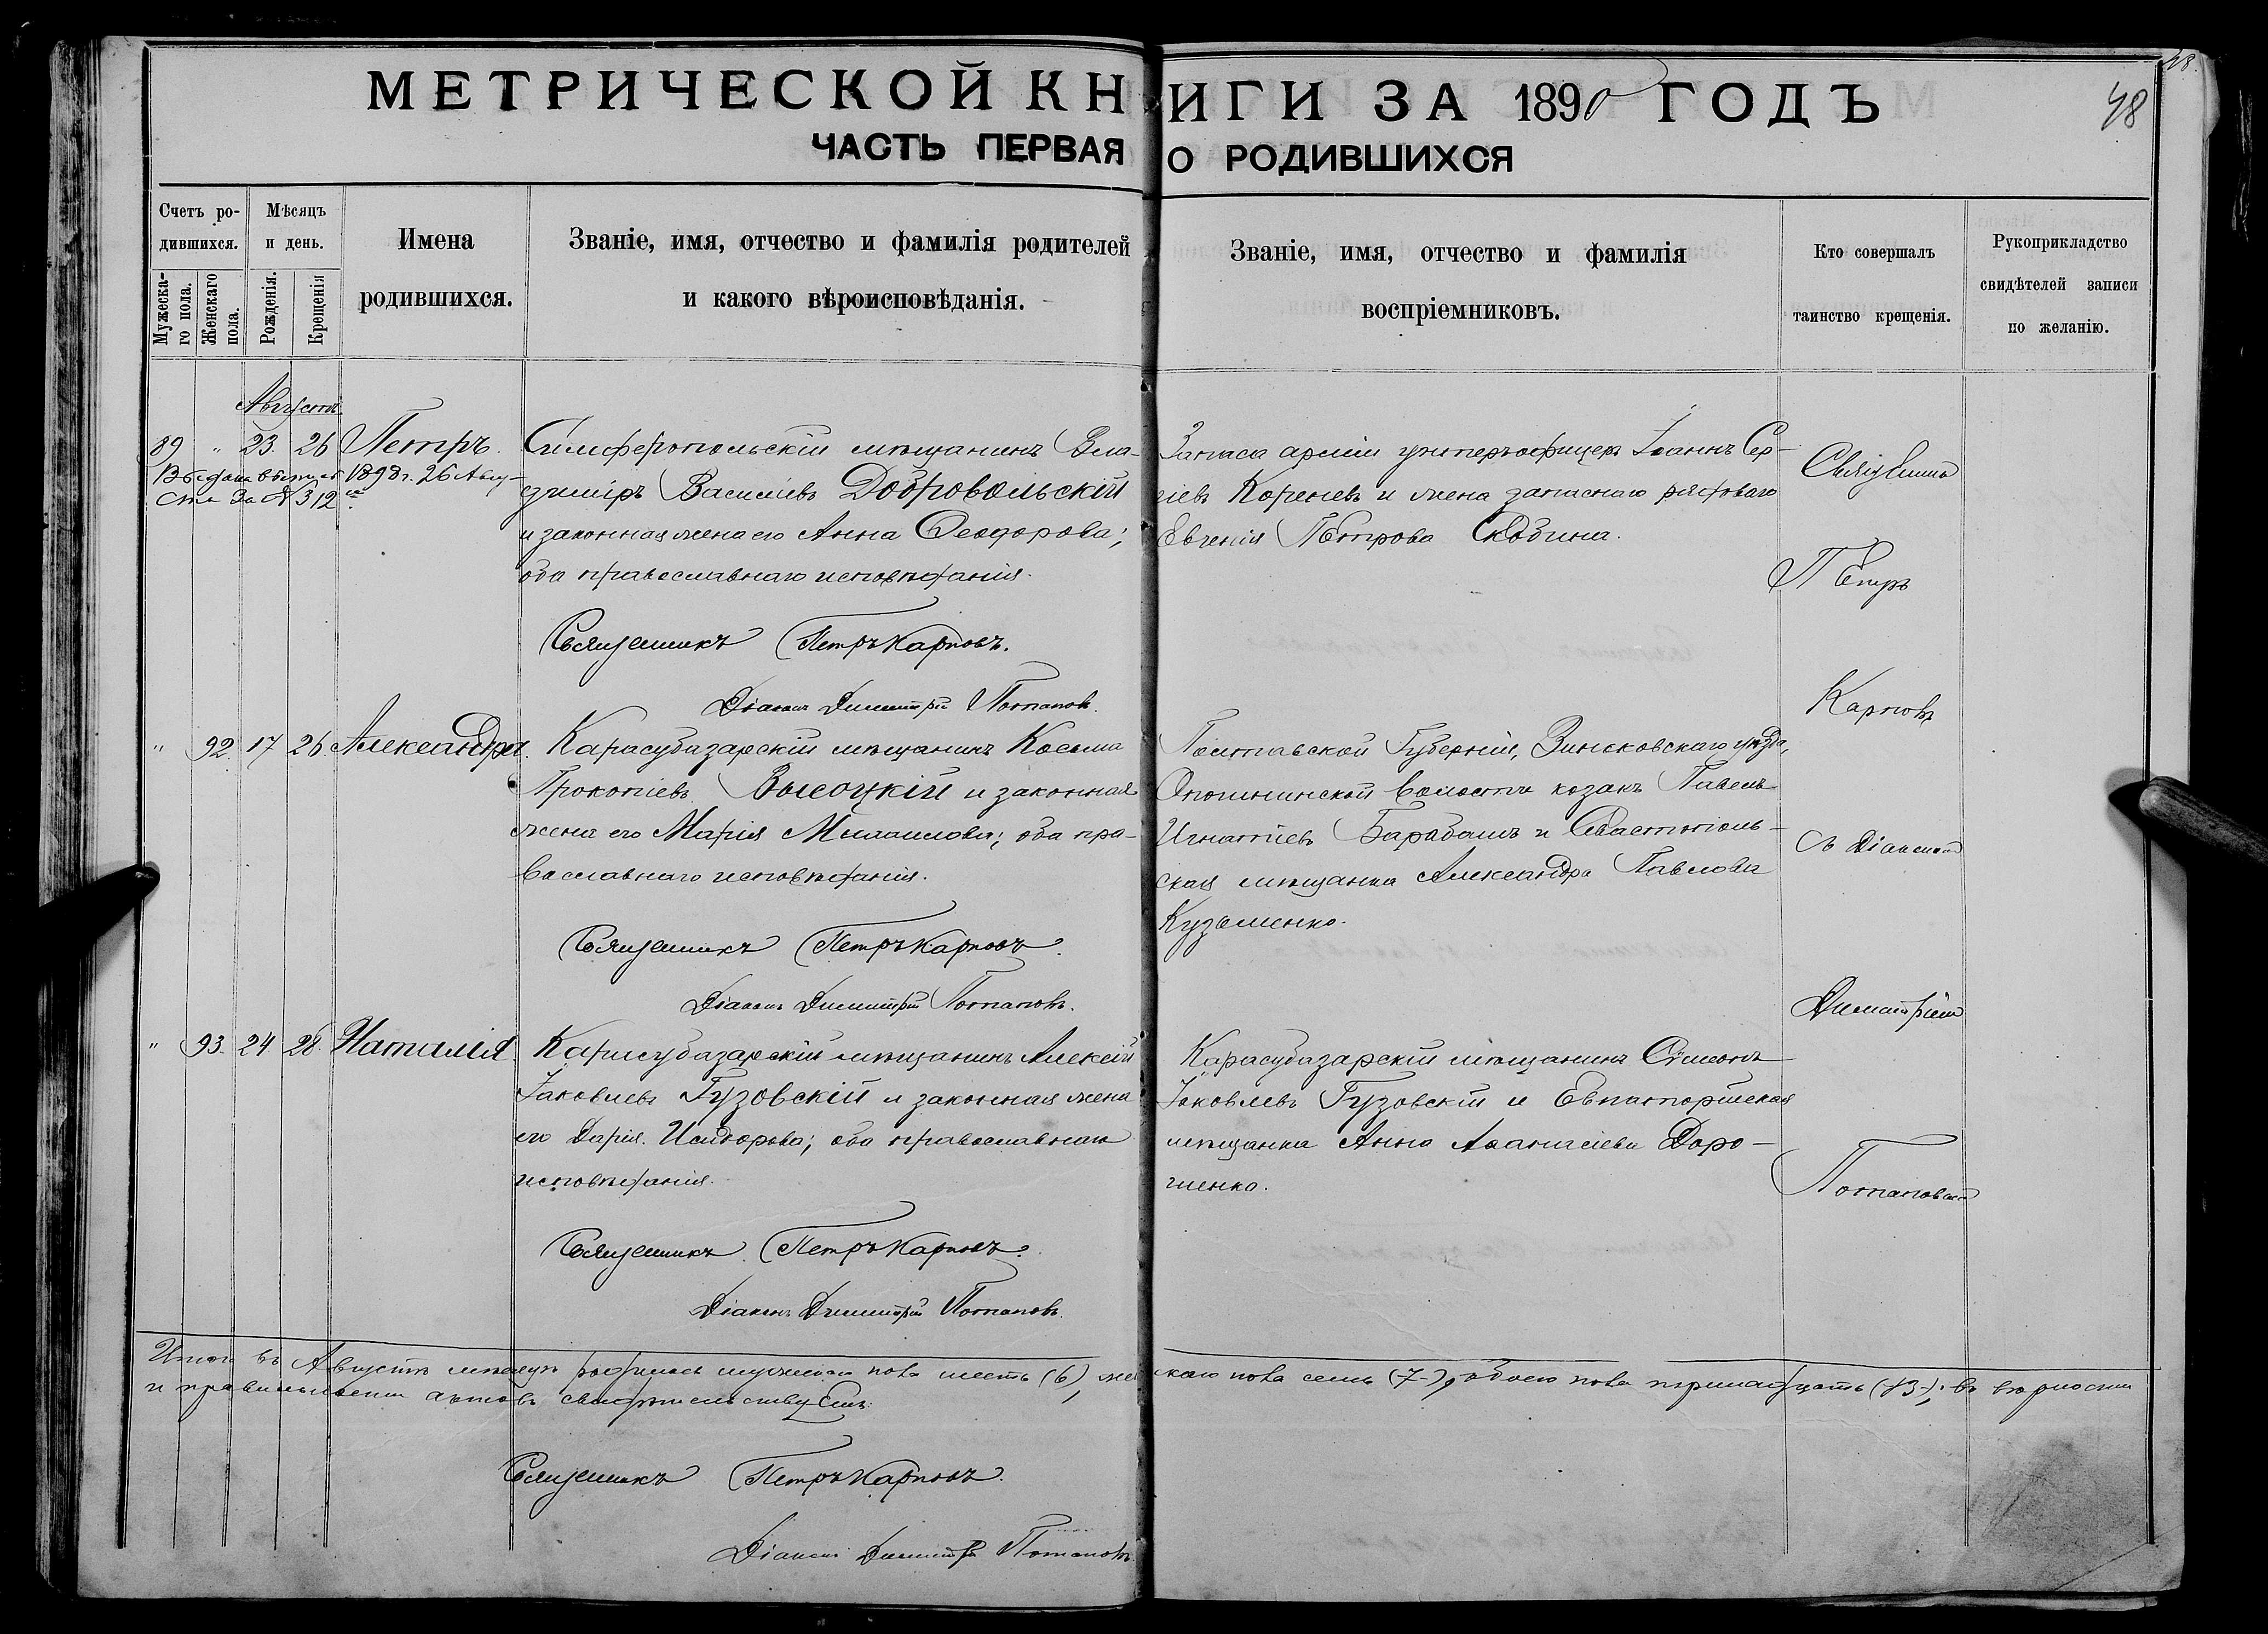 МЕТРИЧЕСКОЙ КНИГИ ЗА 1890 ГОДЪ
48
48
ЧАСТЬ ПЕРВАЯ О РОДИВШИХСЯ
Счетъ ро-
дившихся.
Мужеска-
го пола.
Женскаго
пола.
Мѣсяцъ
и день.
Рожденія.
Крещенія
Имена
родившихся.
Званіе, имя, отчество и фамилія родителей
и какого вѣроисповѣданія.
Званіе, имя, отчество и фамилія
воспріемниковъ.
Кто совершалъ
таинство крещенія.
Рукоприкладство
свидѣтелей записи
по желанію.
Августъ
89 " 23. 26 Петръ.
1898 г. 26 Авгу-
ста за № 312
Симферопольскій мѣщанинъ Вла-
димiръ Василіевъ Добровольскій
и законная жена его Анна Ѳеодорова;
оба православнаго исповѣданія.
Священникъ Петръ Карповъ.
Діаконъ Димитрій Потаповъ.
Запаса арміи унтеръ-офицеръ Іоаннъ Сер-
гіевъ Кореневъ и жена запаснаго рядоваго
Евгенія Петрова Скобина.
" 92. 17 26 Александра.
Карасубазарскій мѣщанинъ Косьма
Прокопіевъ Высоцкій и законная
жена его Марія Михаилова; оба пра-
вославнаго исповѣданія.
Священникъ Петръ Карповъ.
Діаконъ Димитрій Потаповъ.
Полтавской Губерніи, Зиньковскаго уѣзда,
Опошнинской волости козакъ Павелъ
Игнатіевъ Барабашъ и Севастополь-
ская мѣщанка Александра Павлова
Кузьменко.
" 93. 24 28 Наталія
Карасубазарскій мѣщанинъ Алексій
Іаковлевъ Гузовскій и законная жена
его Дарія Исидорова; оба православнаго
исповѣданія.
Священникъ Петръ Карповъ.
Діаконъ Димитрій Потаповъ.
Карасубазарскій мѣщанинъ Симеонъ
Іаковлевъ Гузовскій и Евпаторійская
мѣщанка Анна Аѳанасіева Доро-
шенко.
Священникъ
Петръ
Карповъ
съ Діакономъ
Димитріемъ
Потаповымъ
Итого въ Августѣ мѣсяцѣ родилось мужескаго пола шесть (6), женскаго пола семь (7), обоего пола тринадцать (13); въ вѣрности
и правильности актовъ свидѣтельствуемъ:
Священникъ Петръ Карповъ.
Діаконъ Димитрій Потаповъ.